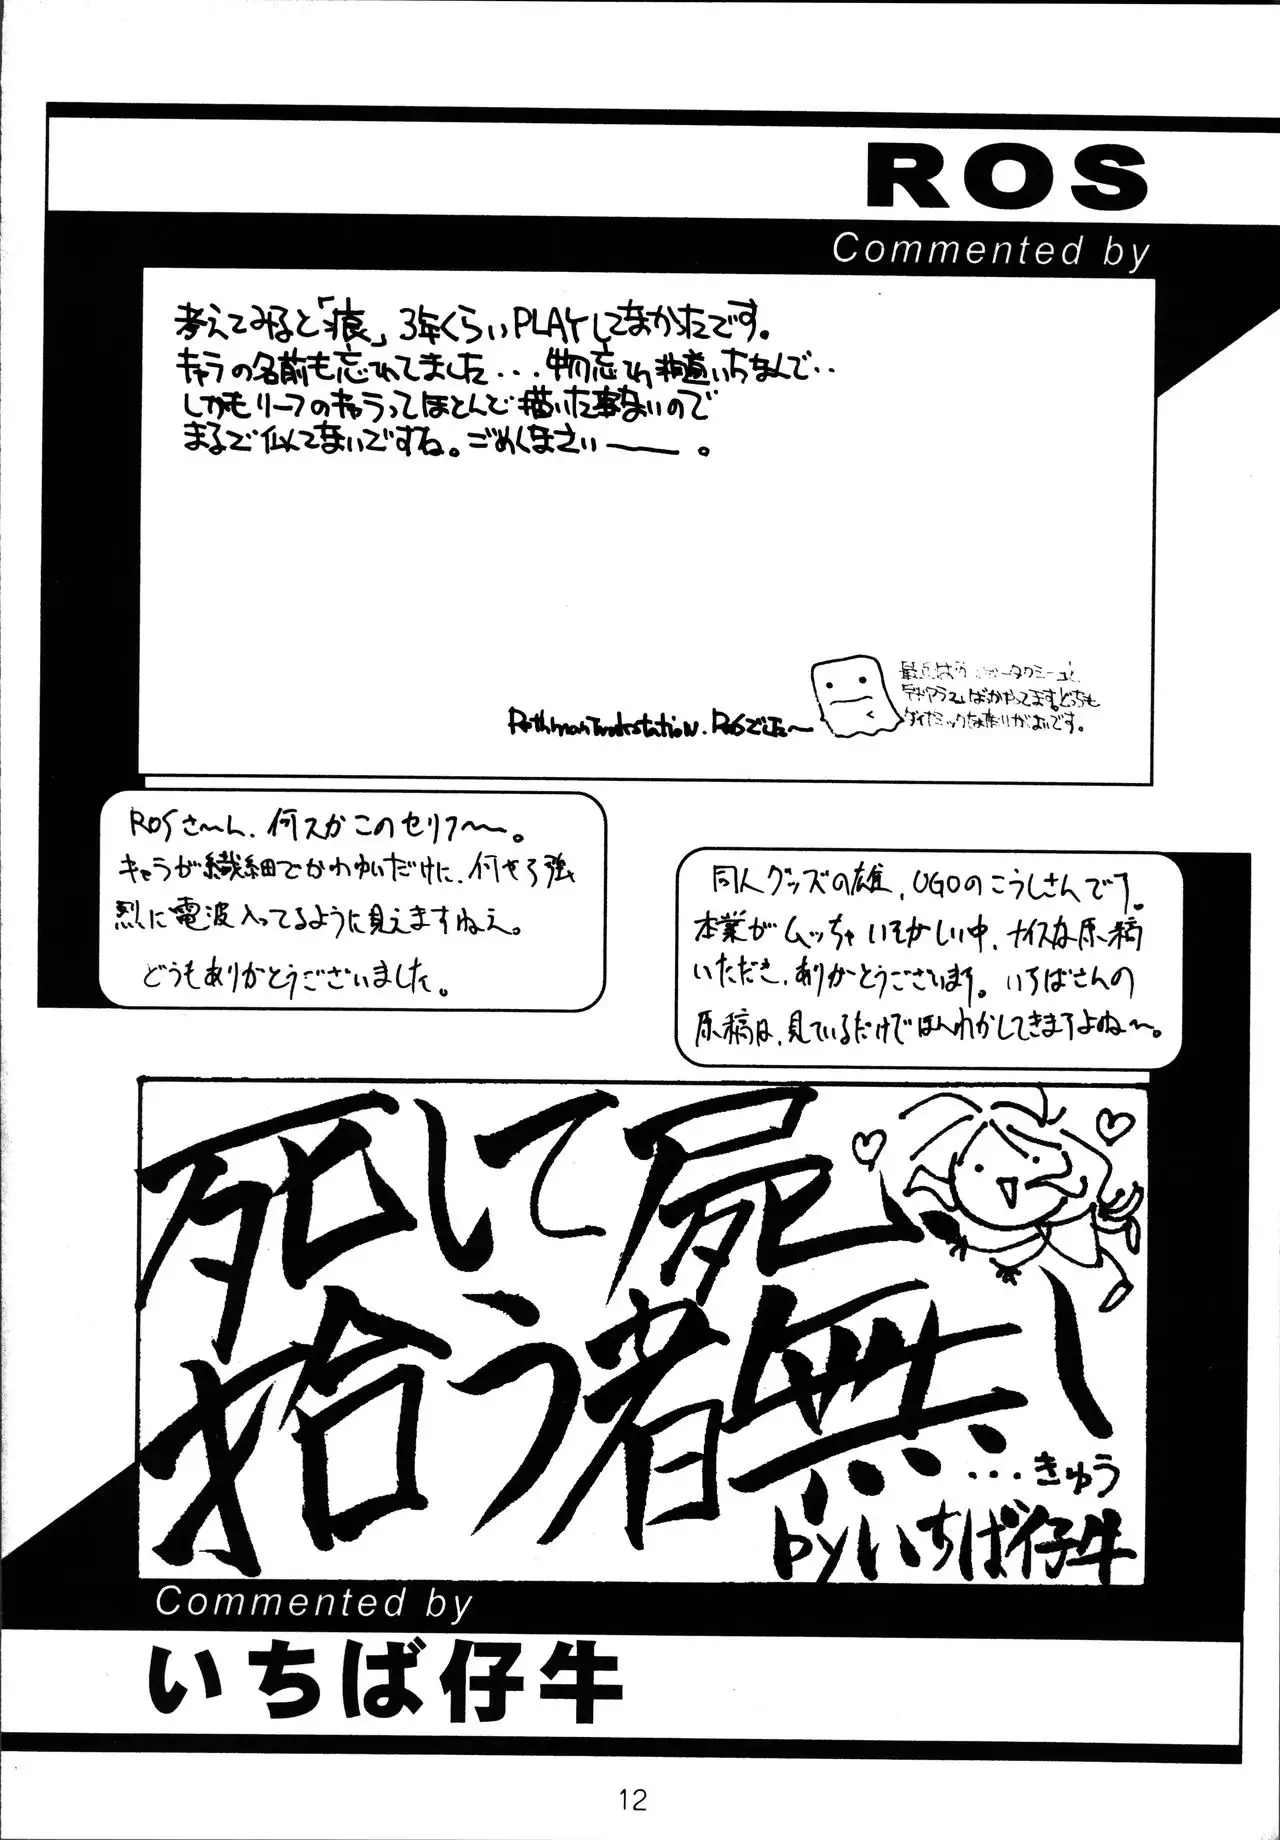 ROS
Commented by
考えてみると「痕」3年くらいPLAYしてなかったです。
キャラの名前も忘れてました...物忘れ非道いちなんで..
しかもリーフのキャラってほとんど描いた事ないので
まるで似てないですね。ごめんなさいーー。
ばかやってます。どっちも
ダイナミックな曲りがよいです。
ROSでした〜
ROSさ〜ん、何スかこのセリフ〜〜。
キャラが繊細でかわゆいだけに、何やら強
烈に電波入ってるように見えますねえ。
どうもありがとうございました。
同人グッズの雄、UGOのこうしさんです。
本業がムッチャいそがしい中、ナイスな原稿
いただき、ありがとうございます。いちばさんの
原稿は、見ているだけでほんわかしてきますよね〜。
死して屍
拾う者無し
...きゅう
byいちば仔牛
Commented by
いちば仔牛
12